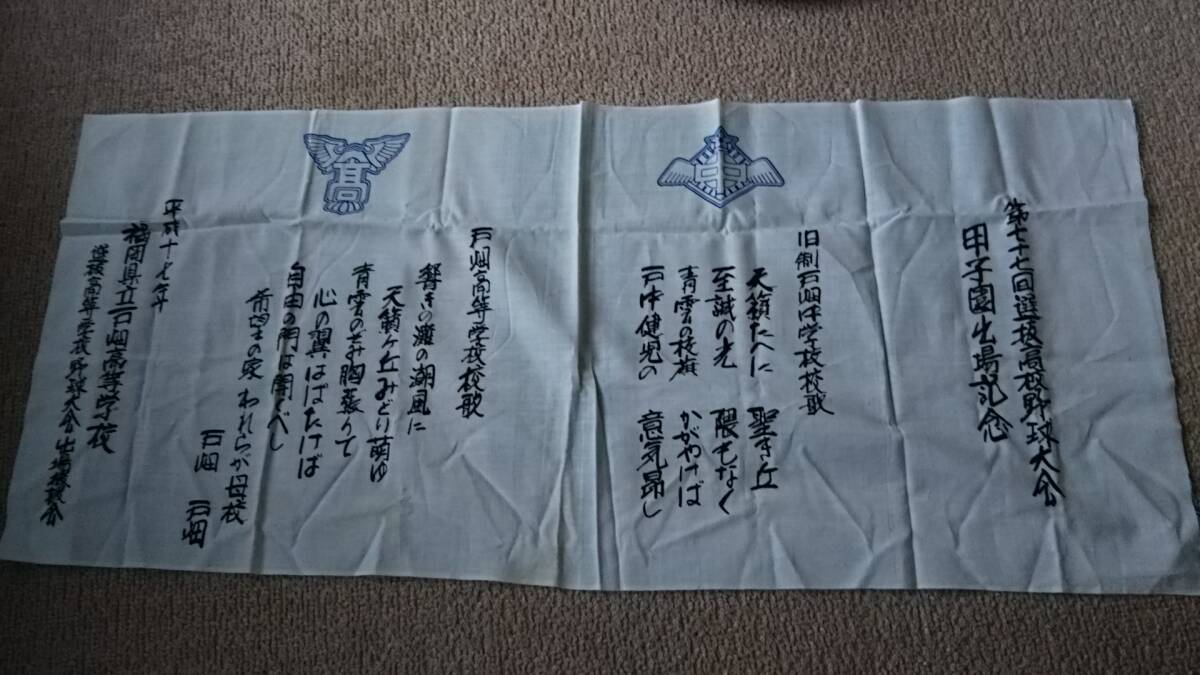 第七十七回選抜高校野球大会
甲子園出場記念
旧制戸畑中学校校歌
天籟たへに 聖き丘
至誠の光 隈もなく
青雲の校旗 かがやけば
戸中健児の 意気昂し
戸畑高等学校校歌
響きの灘の潮風に
天籟ヶ丘みどり萌ゆ
青雲のぞみ胸張りて
心の翼はばたけば
自由の門は開くべし
希望の家われらが母校
戸畑 戸畑
平成十七年
福岡県立戸畑高等学校
選抜高等学校野球大会出場後援会
高
中